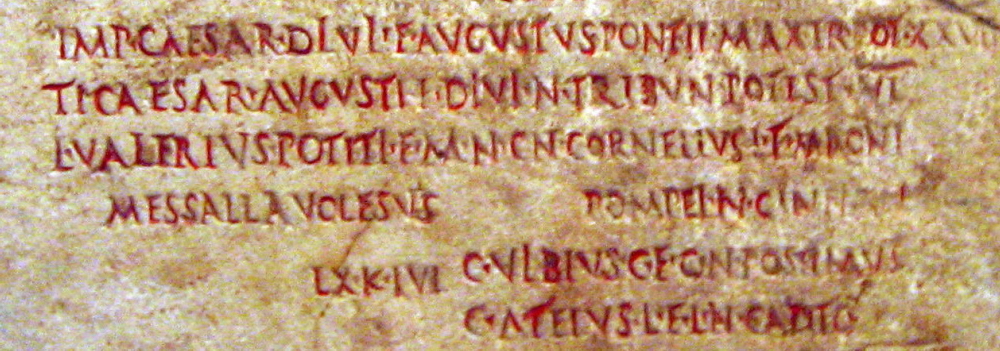 IMP·CAESAR·DIVI·F·AVGVSTVS PONTIF·MAX TR POT·XXVII
TI·CAESAR·AVGVSTI·F·DIVI·N·TRIBVN POTEST·VI
L·VALERIVS POTITI·F·M·N·CN·CORNELIVS·L·F·MAGNI
MESSALLA VOLESVS POMPEI·N·CINNA
LX·K·IVI C·VLBIVS G·F·QN·POSTIMVS
C·ATEIVS·L·F·L·N·CAPITO